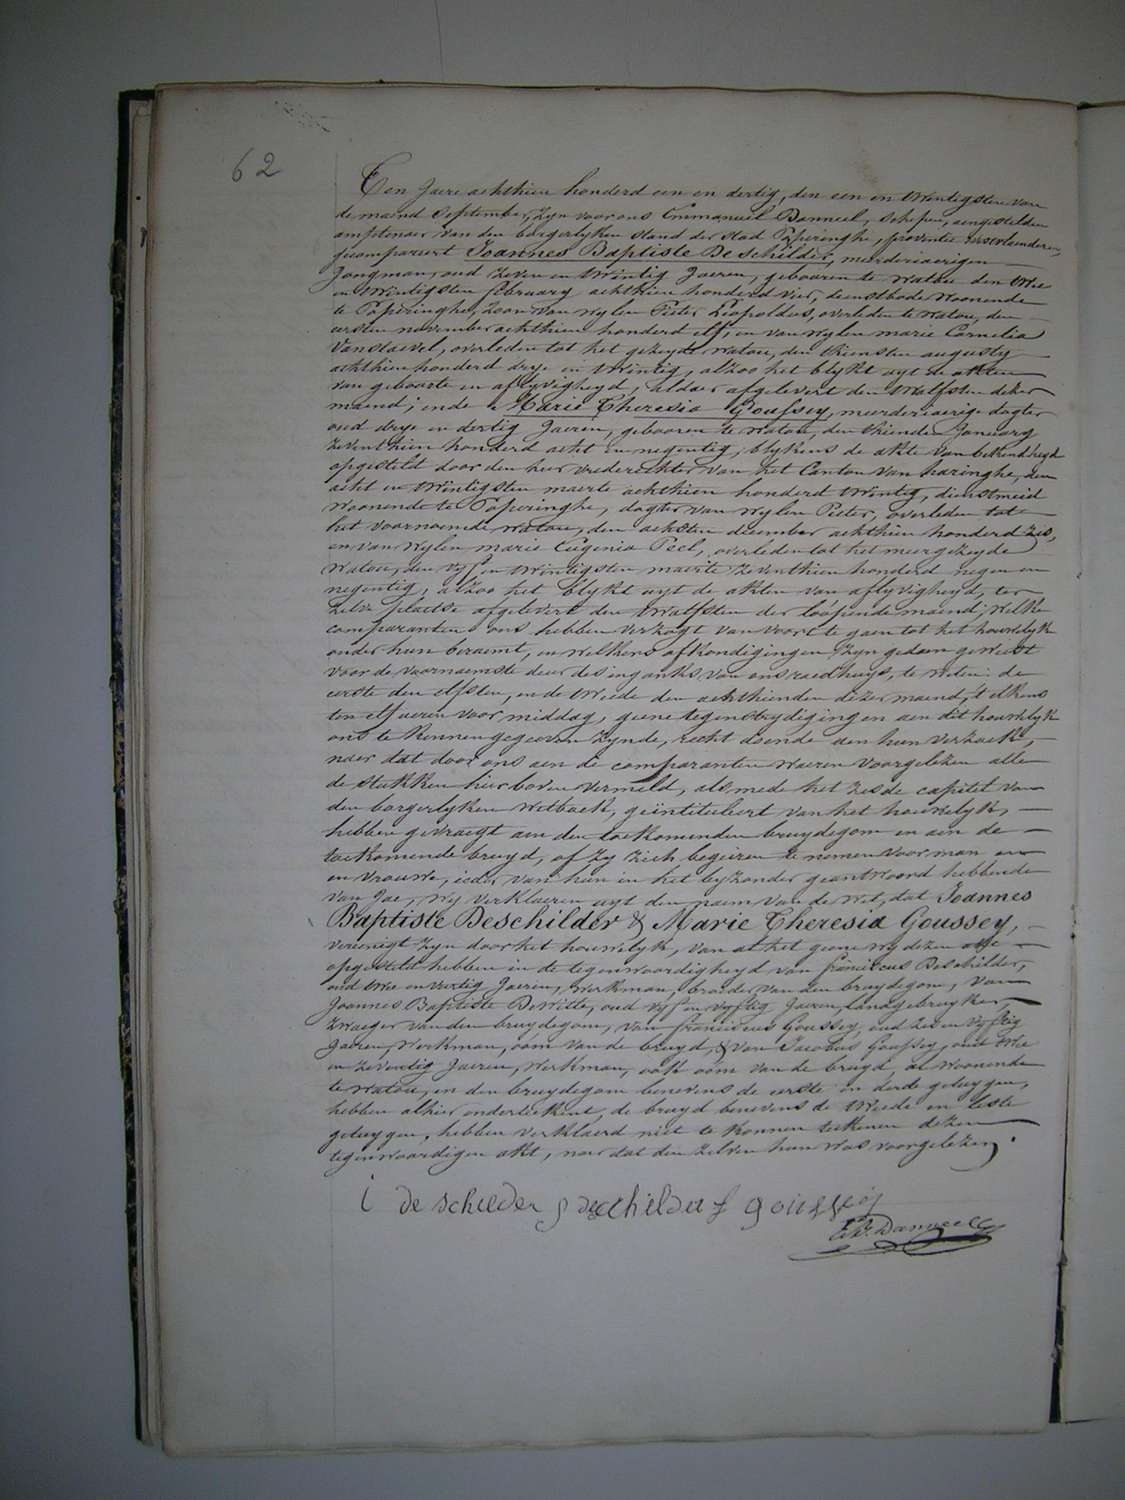 62
Ten Jaere achthien honderd een en dertig, den een en twintigsten van
de maend September, zyn voor ons Emmanuel Danneel, schepen, aengestelden
amptenaer van den borgerlyken stand der stad Poperinghe, provintie Westvlaenderen,
gecompareert Joannes Baptiste De schilder, meerderjaerigen
Jongman, oud zeven en twintig Jaeren, gebooren te watou den twee
en twintigsten february achthien honderd vier, dienstbode woonende
te Poperinghe, zoon van wylen Pieter Leopoldus, overleden te watou, den
eersten november achthien honderd elf, en van wylen marie Cornelia
Vanstaevel, overleden tot het gezeyde watou, den thiensten augusty
achthien honderd drye en twintig, alzoo het blykt uyt de akten
van geboorte en aflyvigheyd, aldaer afgelevert den twalfsten dezer
maend; ende Marie Theresia Goussey, meerderjaerige dogter
oud drye en dertig Jaeren, gebooren te watou, den thienden January
zeventhien honderd acht en negentig, blykens de akte van bekendheyd
opgesteld door den heer vrederechter van het Canton van haringhe, den
acht en twintigsten maerte achthien honderd twintig, dienstmeid
woonende te Poperinghe, dogter van wylen Pieter, overleden tot
het voornoemde watou, den achsten december achthien honderd zes,
en van wylen marie Eugenia Peel, overleden tot het meergezeyde
watou, den vyf en twintigsten maerte zeventhien honderd negen en
negentig, alzoo het blykt uyt de akten van aflyvigheyd, ter
zelve plaetse afgelevert den twalfsten der loopende maend; welke
comparanten ons hebben verzogt van voort te gaen tot het houwelyk
onder hun beraemt, en welkers afkondigingen zyn gedaen geweest
voor de voornaemste deur des ingangs van ons raedhuys, te weten: de
eerste den elfsten, en de tweede den achthienden dezer maend, 't elkens
ten elf ueren voor middag, geene tegenstrydigingen aen dit houwelyk
ons te kennen gegeven zynde, recht doende aen hun verzoek,
naer dat door ons aen de comparanten waeren voorgelezen alle
de stukken hier boven vermeld, als mede het zesde capitel van
den borgerlyken wetboek, geïntituleert van het houwelyk,
hebben gevraegt aen den toekomenden bruydegom en aen de
toekomende bruyd, of zy zich begeiren te nemen voor man en
en vrouwe, ieder van hun in het byzonder geantwoord hebbende
van Jae, wy verklaeren uyt den naem van de wet, dat Joannes
Baptiste Deschilder & Marie Theresia Goussey,
vereenigt zyn door het houwelyk, van al het geene wy dezen akte
opgesteld hebben in de tegenwoordigheyd van franciscus Deschilder,
oud twee en veertig Jaeren, werkman, broeder van den bruydegom, van
Joannes Baptiste De Witte, oud vyf en vyftig Jaeren, landgebruyker,
zwaeger van den bruydegom, van franciscus Goussey, oud zes en vyftig
Jaeren, werkman, oom van de bruyd, & van Jacobus Goussey, oud twee
en zeventig Jaeren, werkman, ook oom van de bruyd, al woonende
te watou, en den bruydegom benevens de eerste en derde getuygen,
hebben alhier onderteekent, de bruyd benevens de tweede en leste
getuygen, hebben verklaerd niet te konnen teekenen dezen
tegenwoordigen akt, naer dat den zelven hun was voorgelezen.
i de schilder f deschilder f goussey
E. Danneel